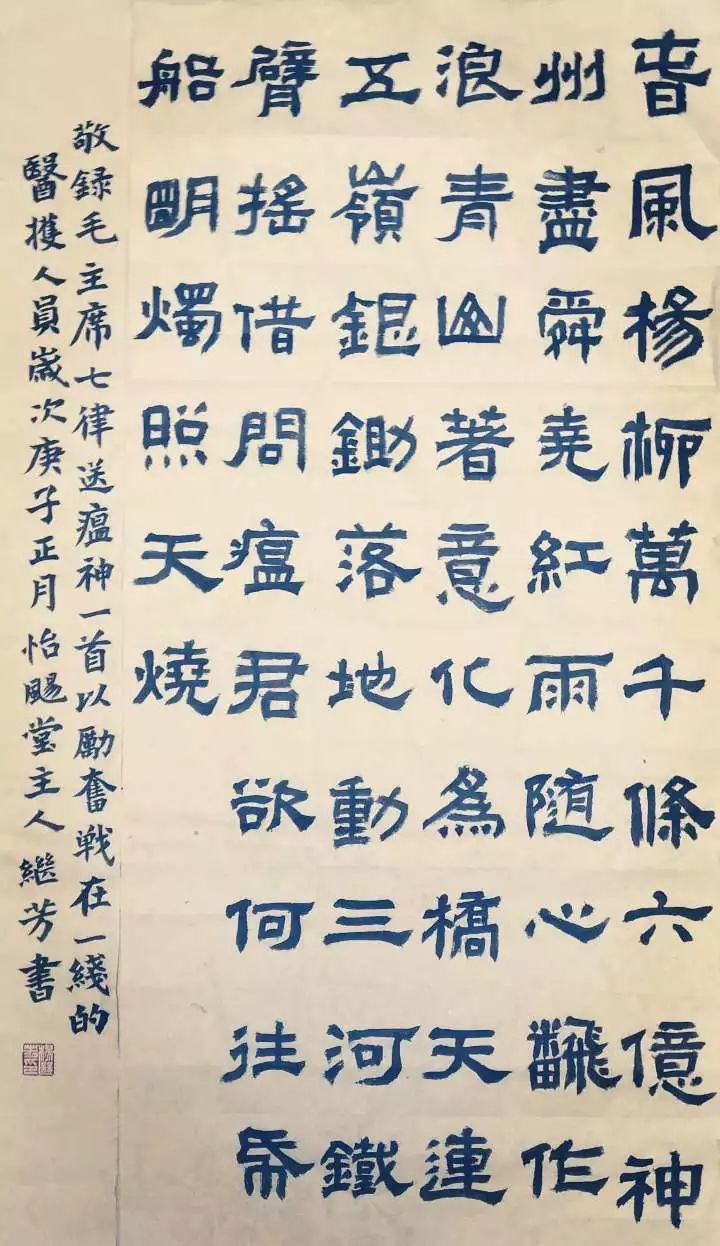 春風楊柳萬千條六億神
州盡舜堯紅雨隨心飜作
浪青山著意化為橋天連
五嶺銀鋤落地動三河鐵
臂搖借問瘟君欲何往帋
船明燭照天燒
敬録毛主席七律送瘟神一首以勵奮戰在一綫的
醫擭人員歲次庚子正月怡颺堂主人繼芳書